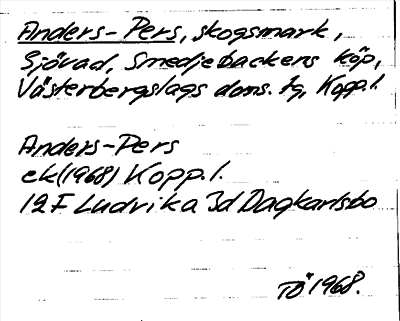 Anders-Pers, skogsmark,
Sjövad, Smedjebackens köp,
Västerbergslags doms. tg, Kopp. l.
Anders-Pers
ek (1968) Kopp. l.
12 F Ludvika 3d Dagkarlsbo
TÖ 1968.